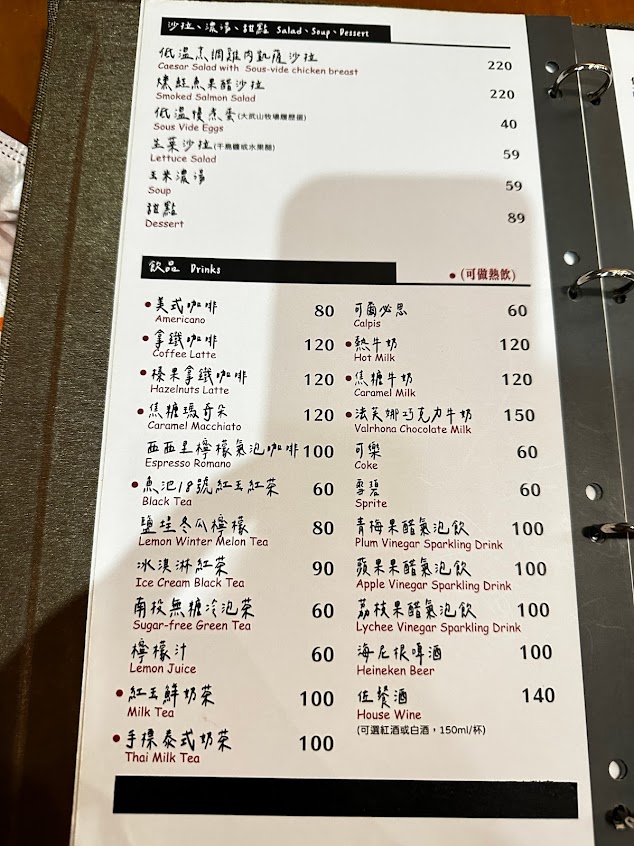 沙拉、濃湯、甜點 Salad、Soup、Dessert
低溫烹調雞肉凱薩沙拉
Caesar Salad with Sous-vide chicken breast 220
燻鮭魚果醋沙拉
Smoked Salmon Salad 220
低溫慢煮蛋(大武山牧場履歷蛋)
Sous Vide Eggs 40
生菜沙拉(千島醬或水果醋)
Lettuce Salad 59
玉米濃湯
Soup 59
甜點
Dessert 89
飲品 Drinks ●(可做熱飲)
●美式咖啡 80
Americano
●拿鐵咖啡 120
Coffee Latte
●榛果拿鐵咖啡 120
Hazelnuts Latte
●焦糖瑪奇朵 120
Caramel Macchiato
西西里檸檬氣泡咖啡 100
Espresso Romano
●魚池18號紅玉紅茶 60
Black Tea
鹽埕冬瓜檸檬 80
Lemon Winter Melon Tea
冰淇淋紅茶 90
Ice Cream Black Tea
南投無糖冷泡茶 60
Sugar-free Green Tea
檸檬汁 60
Lemon Juice
●紅玉鮮奶茶 100
Milk Tea
●手標泰式奶茶 100
Thai Milk Tea
可爾必思 60
Calpis
●熱牛奶 120
Hot Milk
●焦糖牛奶 120
Caramel Milk
●法芙娜巧克力牛奶 150
Valrhona Chocolate Milk
可樂 60
Coke
雪碧 60
Sprite
青梅果醋氣泡飲 100
Plum Vinegar Sparkling Drink
蘋果果醋氣泡飲 100
Apple Vinegar Sparkling Drink
荔枝果醋氣泡飲 100
Lychee Vinegar Sparkling Drink
海尼根啤酒 100
Heineken Beer
佐餐酒 140
House Wine
(可選紅酒或白酒，150ml/杯)